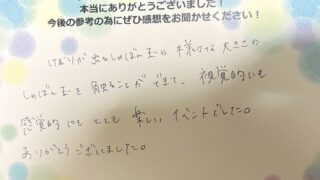 本当にありがとうございました！
今後の参考の為にぜひ感想をお聞かせください！
けむりが出るしゃぼん玉や様々な大きさの
しゃぼん玉を触ることができて、視覚的にも
感覚的にもとても楽しいイベントでした。
ありがとうございました。